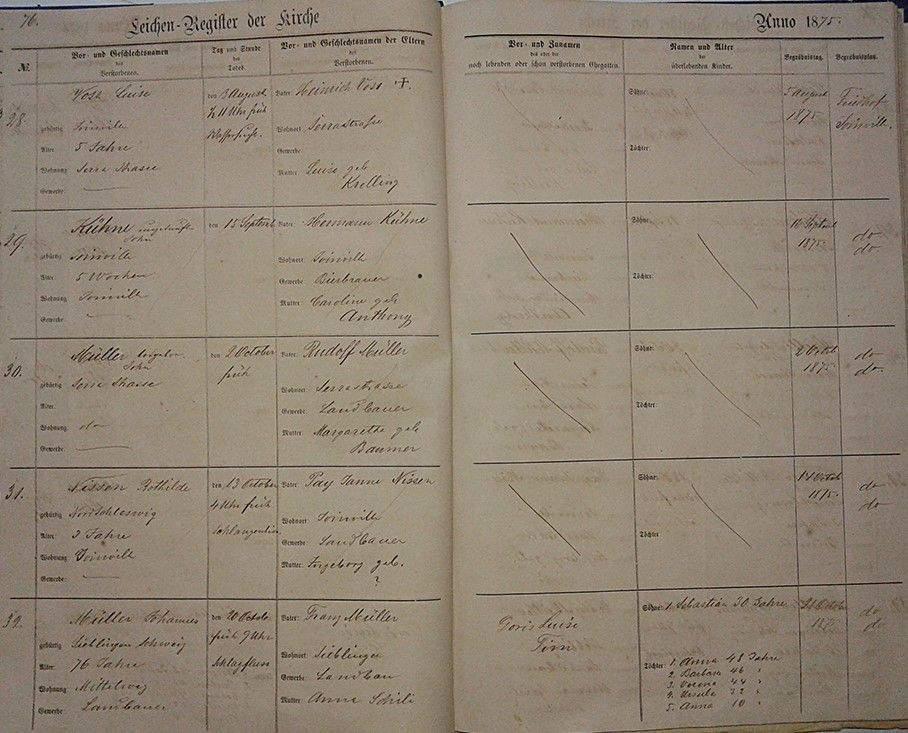 76.
Leichen-Register der Kirche
Anno 1875.
№.
Vor- und Geschlechtsnamen
des
Verstorbenen.
Tag und Stunde
des
Todes.
Vor- und Geschlechtsnamen der Eltern
des
Verstorbenen.
Vor- und Zunamen
des oder der
noch lebenden oder schon verstorbenen Ehegatten.
Namen und Alter
der
überlebenden Kinder.
Begräbnißtag.
28.
Voss Luise
gebürtig Joinville
Alter: 5 Jahre
Wohnung: Serra Strasse
Gewerbe:
den 3 August
½ 11 Uhr früh
Vater: Heinrich Voss †.
Wohnort: Serrastrasse
Gewerbe:
Mutter: Luise geb
Krelling
Söhne:
Töchter:
5 August
1875
Friedhof
Joinville.
29.
Kühne
Sohn
gebürtig Joinville
Alter: 5 Wochen
Wohnung: Joinville
Gewerbe:
den 15 Septemb
Vater: Hermann Kühne
Wohnort: Joinville
Gewerbe: Bierbrauer
Mutter: Caroline geb
Anthony
Söhne:
Töchter:
16 Septemb
1875.
do
do
30.
Müller
Sohn
gebürtig Serra Strasse
Alter:
Wohnung: do
Gewerbe:
den 2 October
früh
Vater: Rudolf Müller
Wohnort: Serrastrasse
Gewerbe: Landbauer
Mutter: Margarethe geb
Baumer
Söhne:
Töchter:
2 Octob
1875.
do
do.
31.
Nissen Bothilde
gebürtig Nordschleswig
Alter: 3 Jahre
Wohnung: Joinville
Gewerbe:
den 13 October
4 Uhr früh
Vater: Pay Janne Nissen
Wohnort: Joinville
Gewerbe: Landbauer
Mutter: Ingeborg geb.
?
Söhne:
Töchter:
14 Octob
1875.
do
do
32.
Müller Johannes
gebürtig Sieblingen Schweiz
Alter: 76 Jahre
Wohnung: Mittelweg
Gewerbe: Landbauer
den 20 Octob
früh 7 Uhr
Schlagfluss
Vater: Franz Müller
Wohnort: Sieblingen
Gewerbe: Landbau
Mutter: Anna
Doris Luise
Söhne: 1. Sebastian 30 Jahre
Töchter 1. Anna 48 Jahre
2. Barbara 46 "
3. Verena 44 "
4. Ursula 32 "
5. Anna 10 "
21 Octob
1875.
do
do